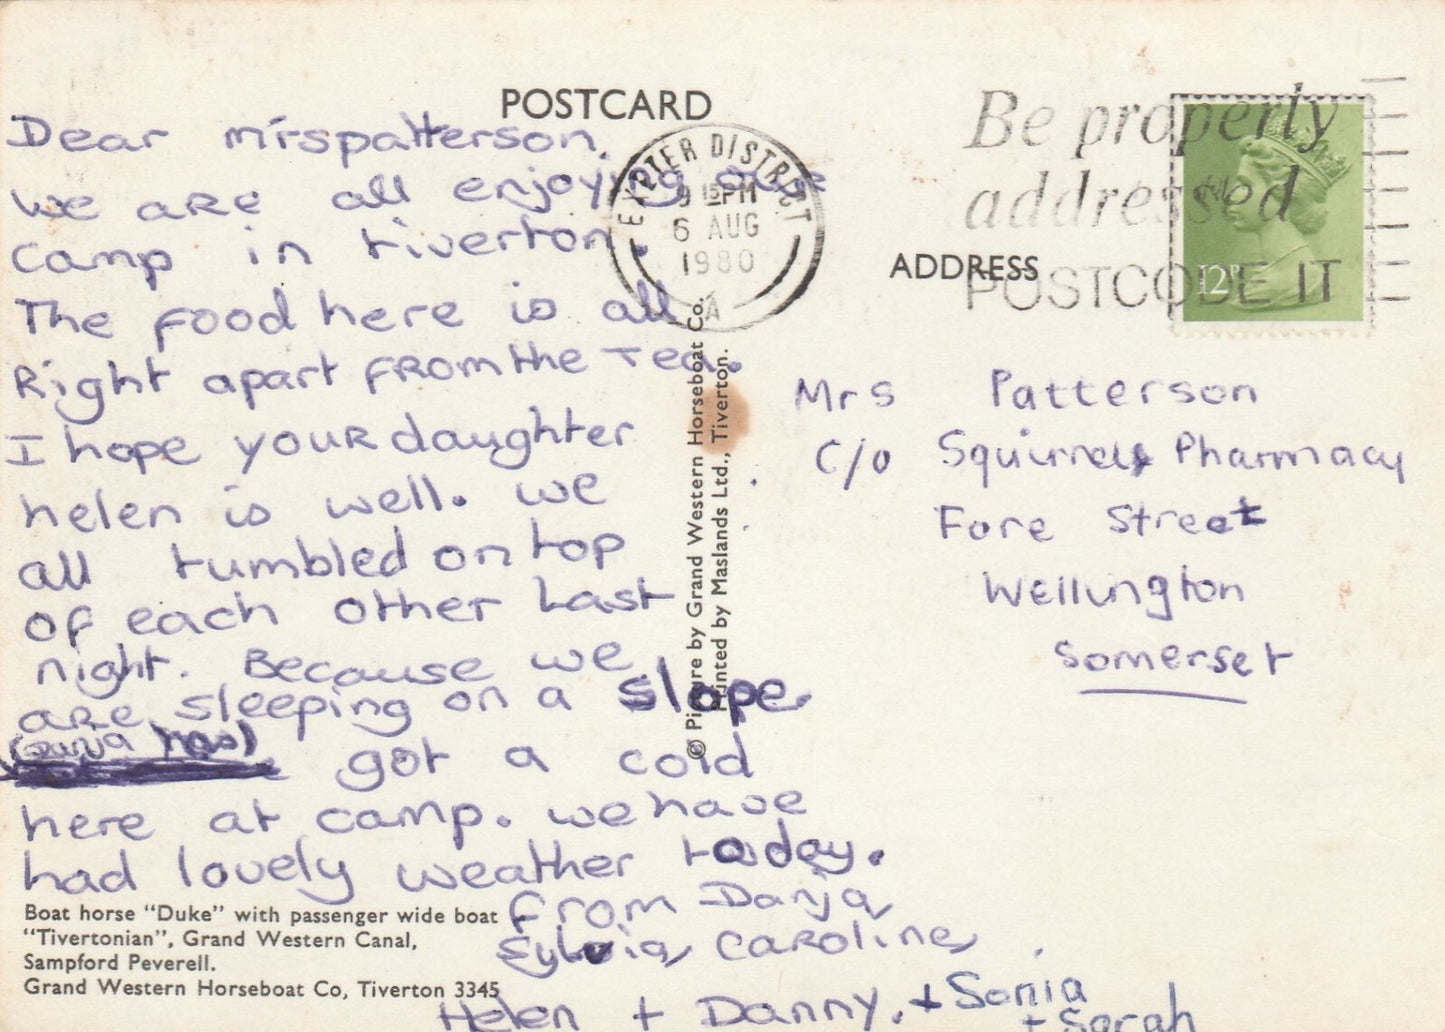 POSTCARD
Dear mrspatterson.
we are all enjoying our
camp in tiverton.
The food here is all
Right apart from the Tea.
I hope your daughter
helen is well. we
all tumbled on top
of each other Last
night. Because we
are sleeping on a slope.
(Danja has) got a cold
here at camp. we have
had lovely weather today.
From Danja,
Sylvia, Caroline,
Helen + Danny. + Sonia
+ Sarah
Boat horse “Duke” with passenger wide boat
“Tivertonian”, Grand Western Canal,
Sampford Peverell.
Grand Western Horseboat Co, Tiverton 3345
© Picture by Grand Western Horseboat Co.
Printed by Maslands Ltd., Tiverton.
EXETER DISTRICT
9 15PM
6 AUG
1980
A
Be properly
addressed
POSTCODE IT
12P
ADDRESS
Mrs Patterson
c/o Squirrels Pharmacy
Fore Street
Wellington
Somerset